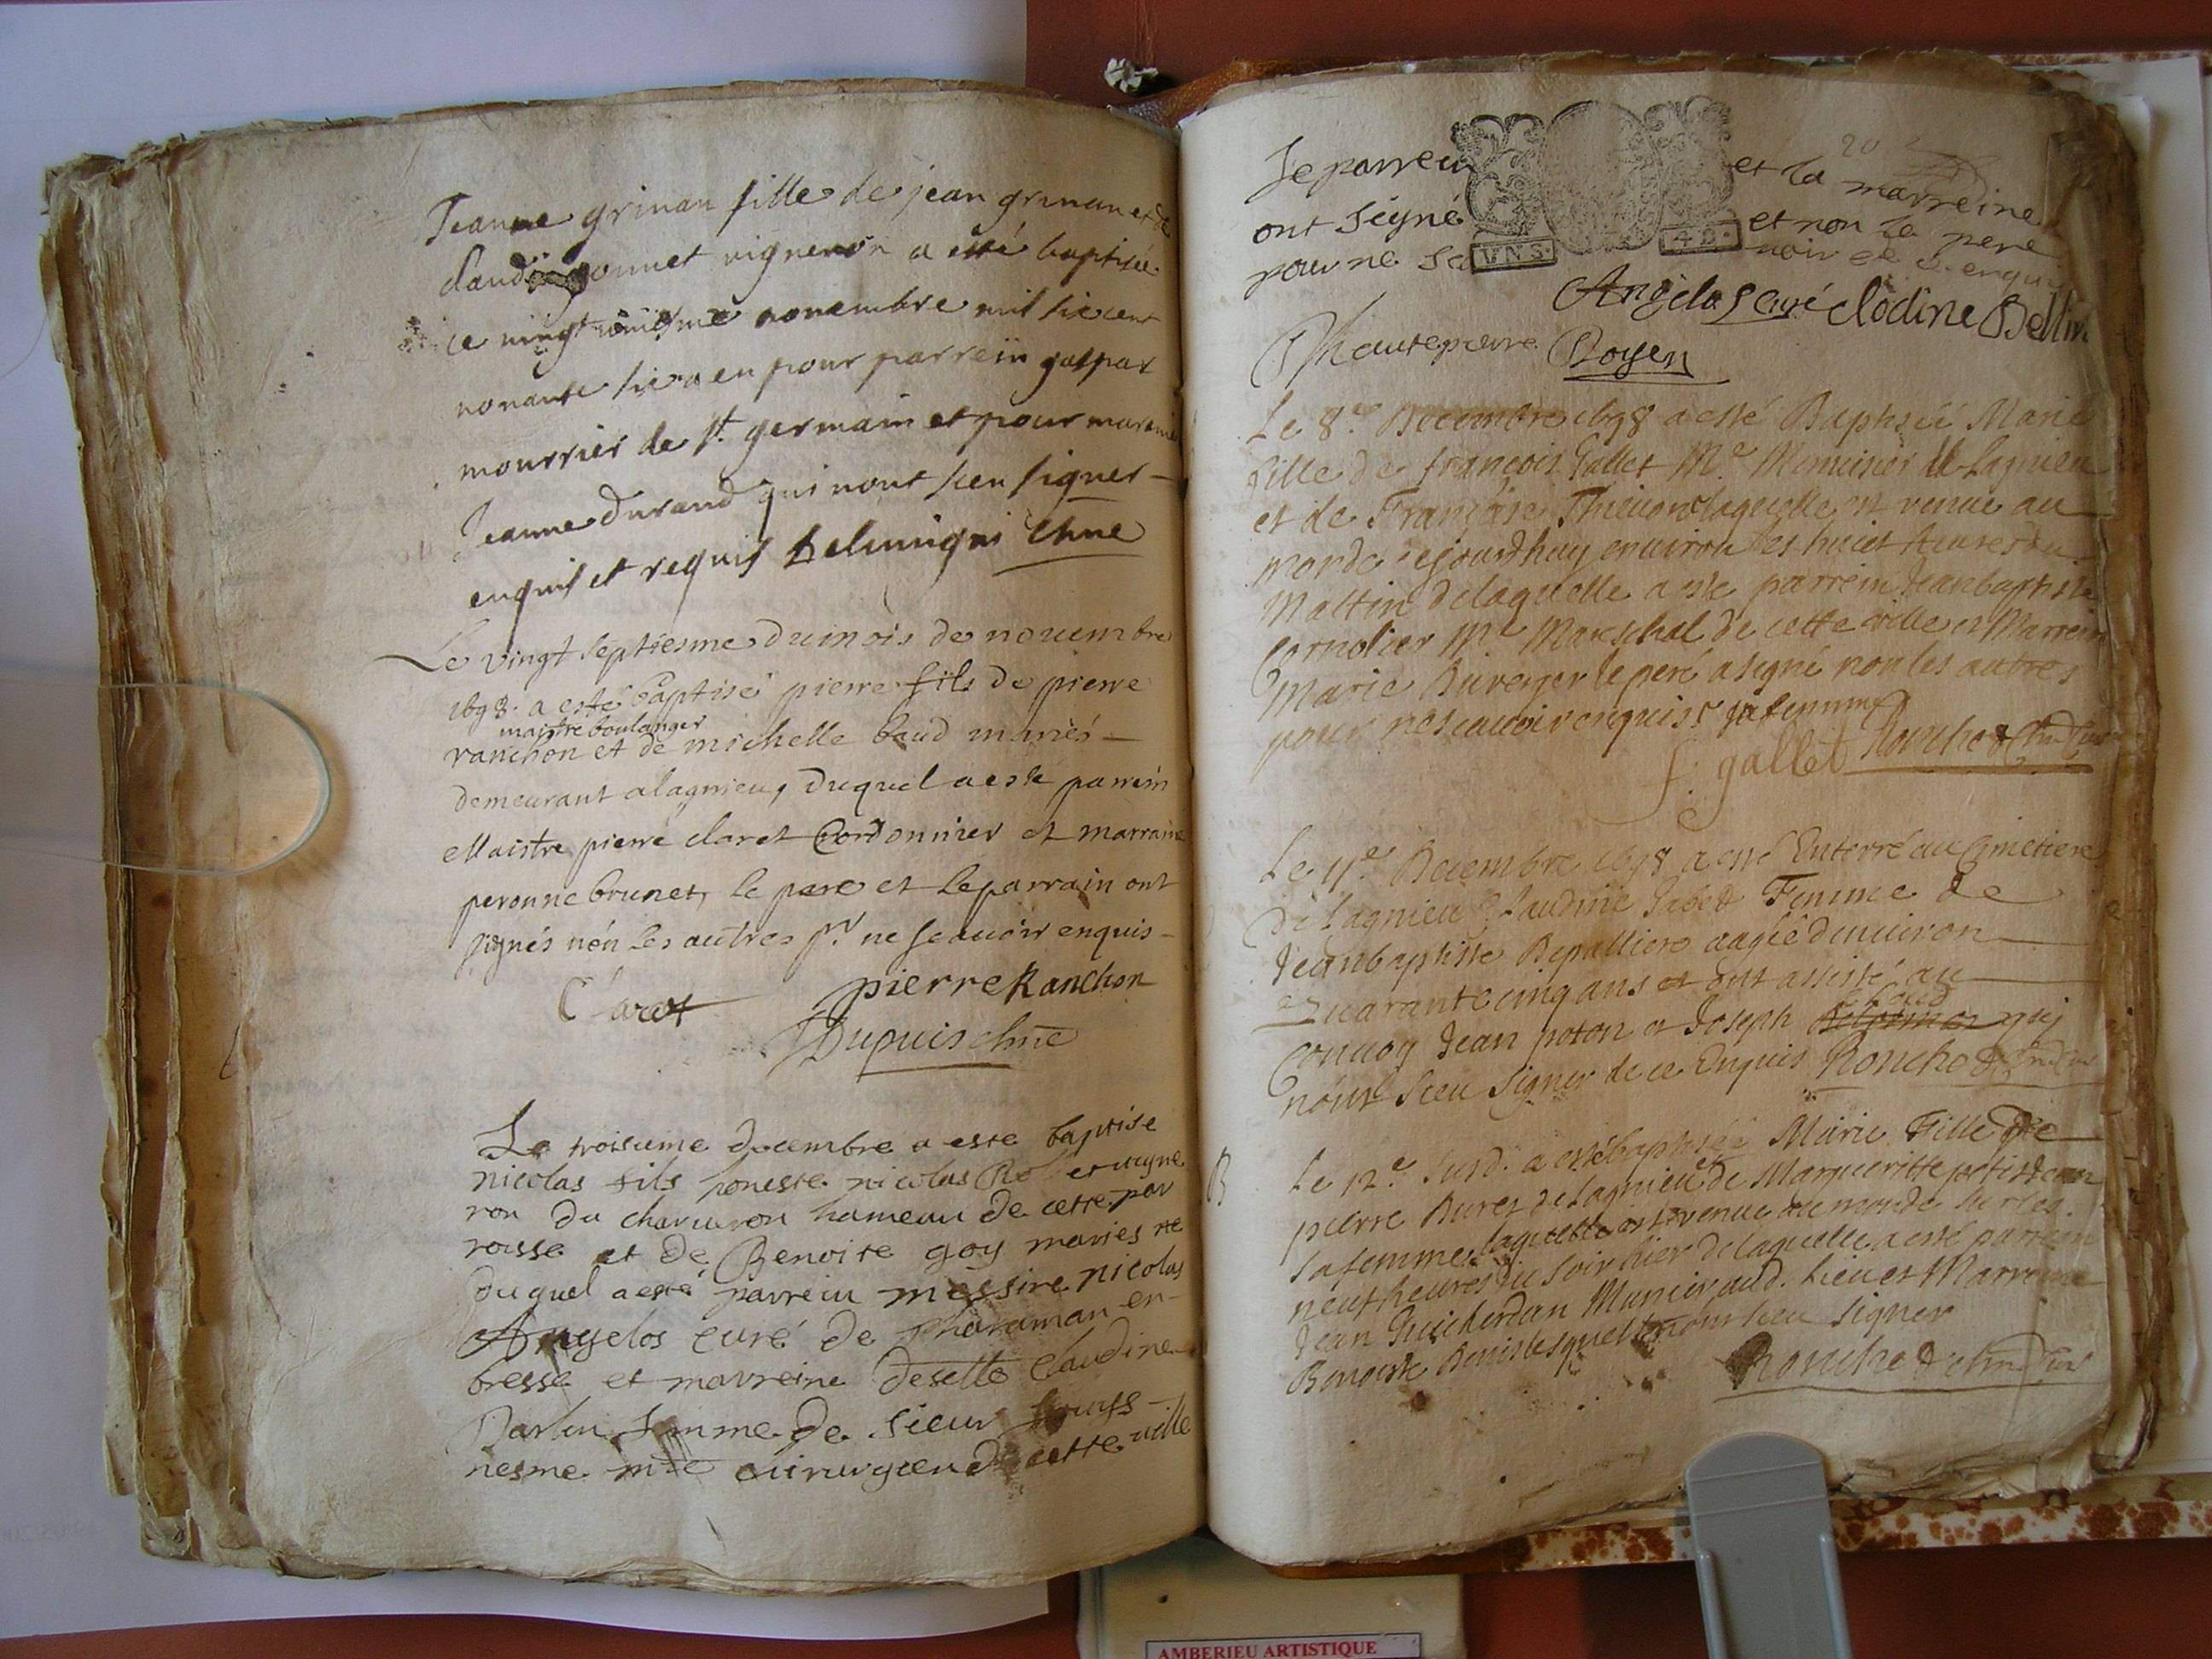 Jeanne grinan fille de jean grinan et de
claudine jonnet vigneron a esté baptisée
ce vingt novembre mil six cent
nonante six a eu pour parrein gaspar
mourrier de st. germain et pour mareine
Jeanne durand qui nont sceu signer
enquis et requis chne
Le vingt septiesme du mois de novembre
1698. a esté baptisé pierre fils de pierre
maistre boulanger
ranchon et de michelle baud mariés
demeurant a lagnieu, duquel a esté parrein
Maistre pierre claret Cordonnier et marraine
peronne brunet, le pere et le parrain ont
signés nón les autres pr. ne scavoir enquis
Claret pierre Ranchon
Dupuis chne
Le troisieme decembre a este baptise
nicolas fils honeste nicolas et vigne
ron du charveron hameau de cette par
roisse et de Benoite goy maries
duquel a esté parrein messire nicolas
Angelos curé de pharaman en
bresse et marreine deselle claudine
femme de sieur
nesme mtre cirurgien de cette ville
Le parrein et la marreine 20
ont signé et non le pere
pour ne Sca voir de ce enquis
VNS. 4 D.
Angelos curé clodine Bellin
Hautepierre Doyen
Le 8.e Decembre 1698 a esté Baptisée Marie
fille de françois Gallet Me. Menuisier de Lagnieu
et de Françoise Thievon laquelle est venue au
monde cejourdhuy environ les huict heures du
Mattin de laquelle a esté parrein Jean baptiste
Cornolier Me. Mareschal de cette ville et Marreine
Marie Duverger le pere a signé non les autres
pour ne scavoir enquis
f. gallet Ronchod
Le 11e. Decembre 1698 a esté Enterré au Cimetiere
de Lagnieu Claudine Femme de
Jean baptiste aagée denviron
Quarante cinq ans et ont assisté au
Convoy Jean poton et Joseph qui
nont sceu Signer de ce Enquis Ronchod
B
Le 12.e Susd. a esté baptisée Marie Fille de
pierre Buret de Lagnieu et de Margueritte
sa femme laquelle est venue au monde sur les
neuf heures du Soir hier de laquelle a esté parrein
Jean Munier aud. Lieu et Marreine
Benoiste lesquels nont sceu Signer
Ronchod
AMBERIEU ARTISTIQUE